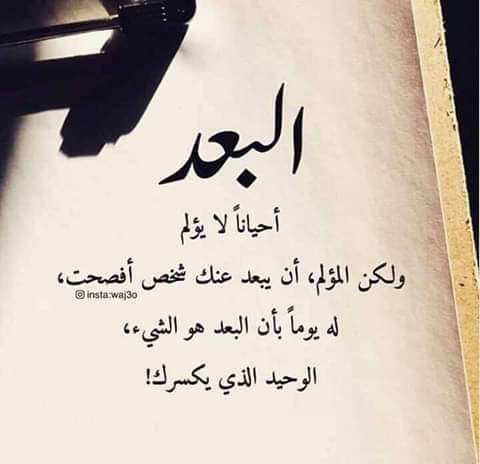 البعد
أحياناً لا يؤلم
ولكن المؤلم، أن يبعد عنك شخص أفصحت،
insta:waj3o
له يوماً بأن البعد هو الشيء،
الوحيد الذي يكسرك!